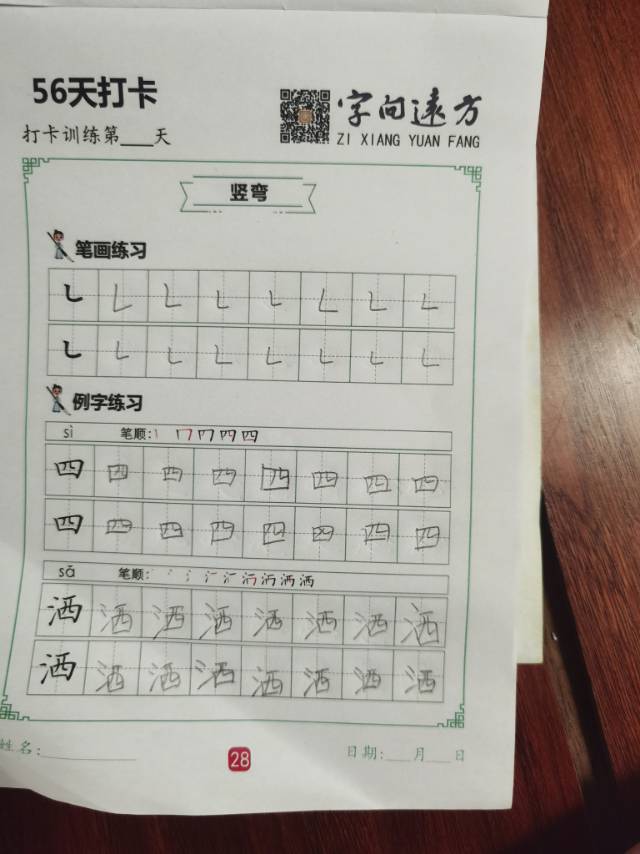 56天打卡
字向远方
打卡训练第___天
ZI XIANG YUAN FANG
竖弯
笔画练习
㇄ ㇄ ㇄ ㇄ ㇄ ㇄ ㇄ ㇄
㇄ ㇄ ㇄ ㇄ ㇄ ㇄ ㇄ ㇄
例字练习
sì 笔顺:
四 四 四 四 四 四 四 四
四 四 四 四 四 四 四 四
sǎ 笔顺:
洒 洒 洒 洒 洒 洒 洒 洒
洒 洒 洒 洒 洒 洒 洒 洒
姓名:___ 28 日期:___月___日